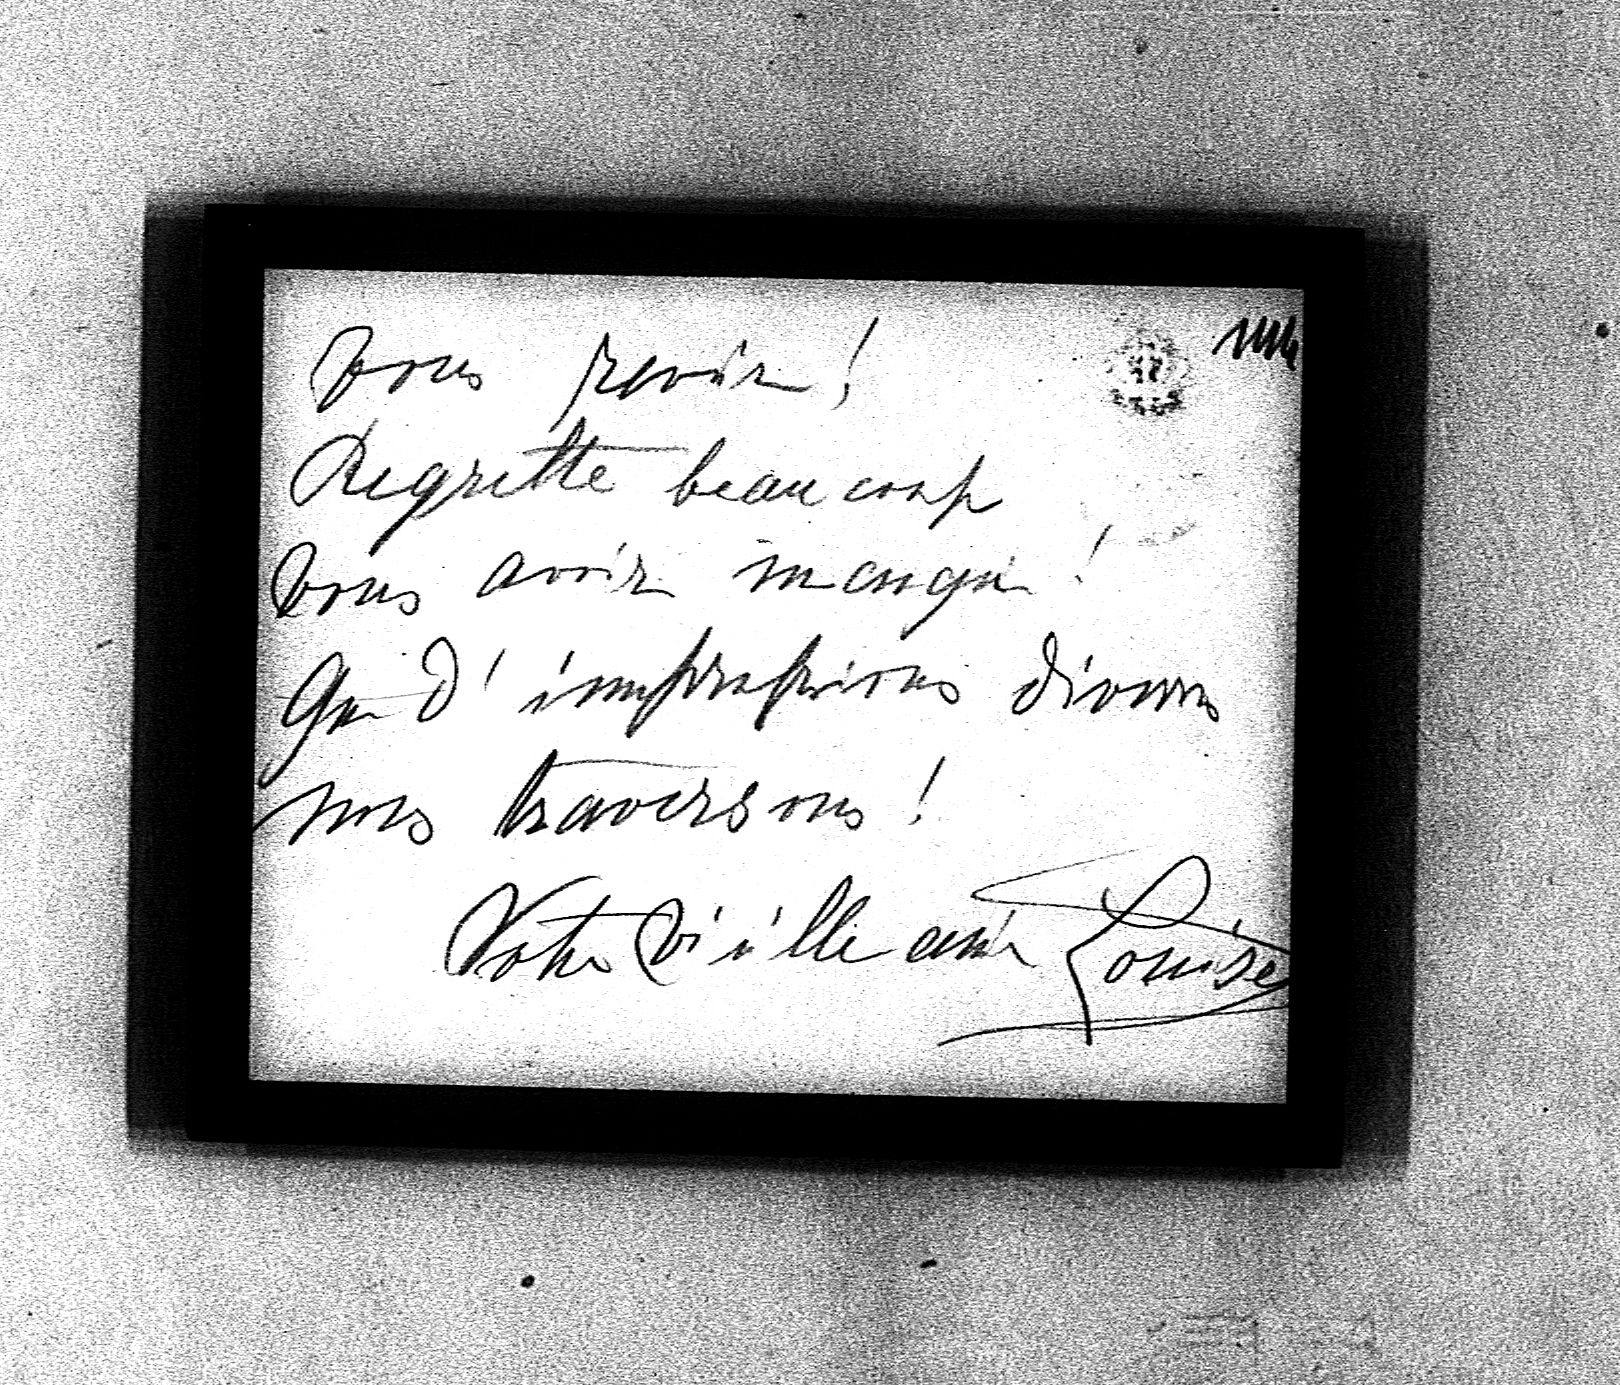 vous revoir !
Regrette beaucoup
vous avoir manqué !
Que d'impressions diverses
nous traversons !
Votre vieille amie Louise